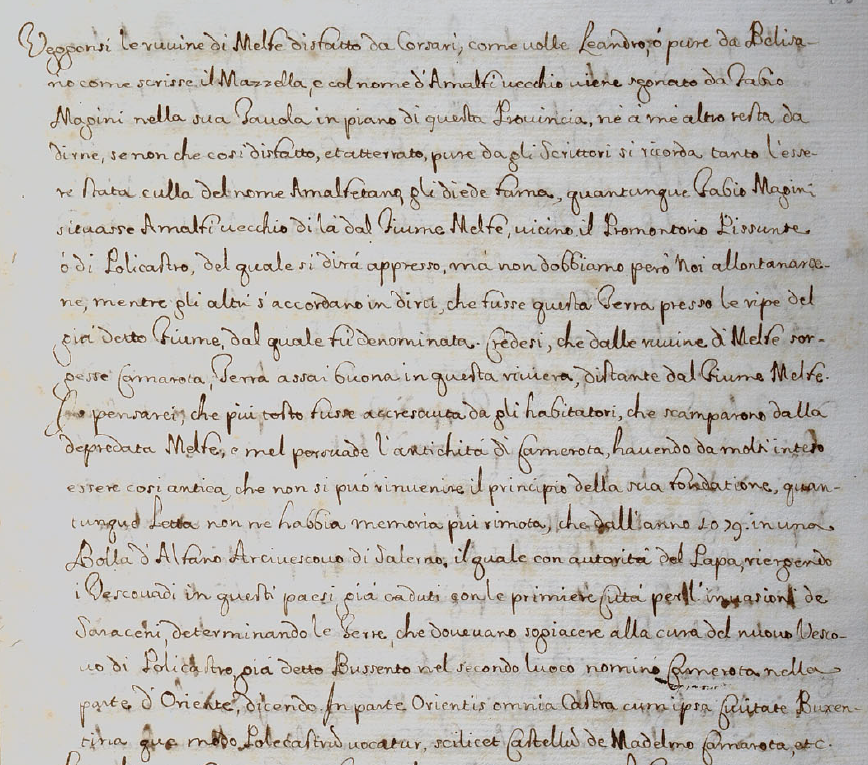 Veggonsi le ruuine di Melfe disfatto da Corsari, come volle Leandro, ó pure da Belisa-
rio come scrisse il Mazzella, e col nome d'Amalfi vecchio viene segnato da Fabio
Magini nella sua Tavola in piano di questa Provincia, né á me altro resta da
dirne, se non che cosi disfatto, et atterrato, pure da gli Scrittori si ricorda tanto l'esse-
re stata culla del nome Amalfetano gli diede fama, quantunque Fabio Magini
situasse Amalfi vecchio di lá dal Fiume Melfe, vicino il Promontorio Pissunte
ó di Policastro, del quale si dirá appresso, má non dobbiamo peró noi allontanarce-
ne, mentre gli altri s'accordano in dirci, che fusse questa Terra presso le ripe del
giá detto Fiume, dal quale fú denominata. Credesi, che dalle ruuine di Melfe sor-
gesse Camarota, Terra assai buona in questa riviera, distante dal Fiume Melfe.
Io pensarei, che piú tosto fusse accresciuta da gli habitatori, che scamparono dalla
depredata Melfe, e mel persuade l'antichitá di Camerota, havendo da molti inteso
essere cosi antica, che non si può rinuenire il principio della sua fondatione, quan-
tunque Letta non ne habbia memoria piú rimota, che dall'anno 1079. in una
Bolla d'Alfano Arcivescovo di Salerno, il quale con autoritá del Papa, riergendo
i Vescovadi in questi paesi giá caduti con le primiere Cittá per l'invasioni de
Saraceni, determinando le Terre, che dovevano sogiacere alla cura del nuovo Vesco-
vo di Policastro, giá detto Bussento nel secondo luoco nominó Camerota nella
parte d'Oriente, dicendo In parte Orientis omnia Castra cum ipsa Civitate Buxen-
tina que modo Polecastrũ vocatur, scilicet Castellũ de Madelmo Camarota, etc.